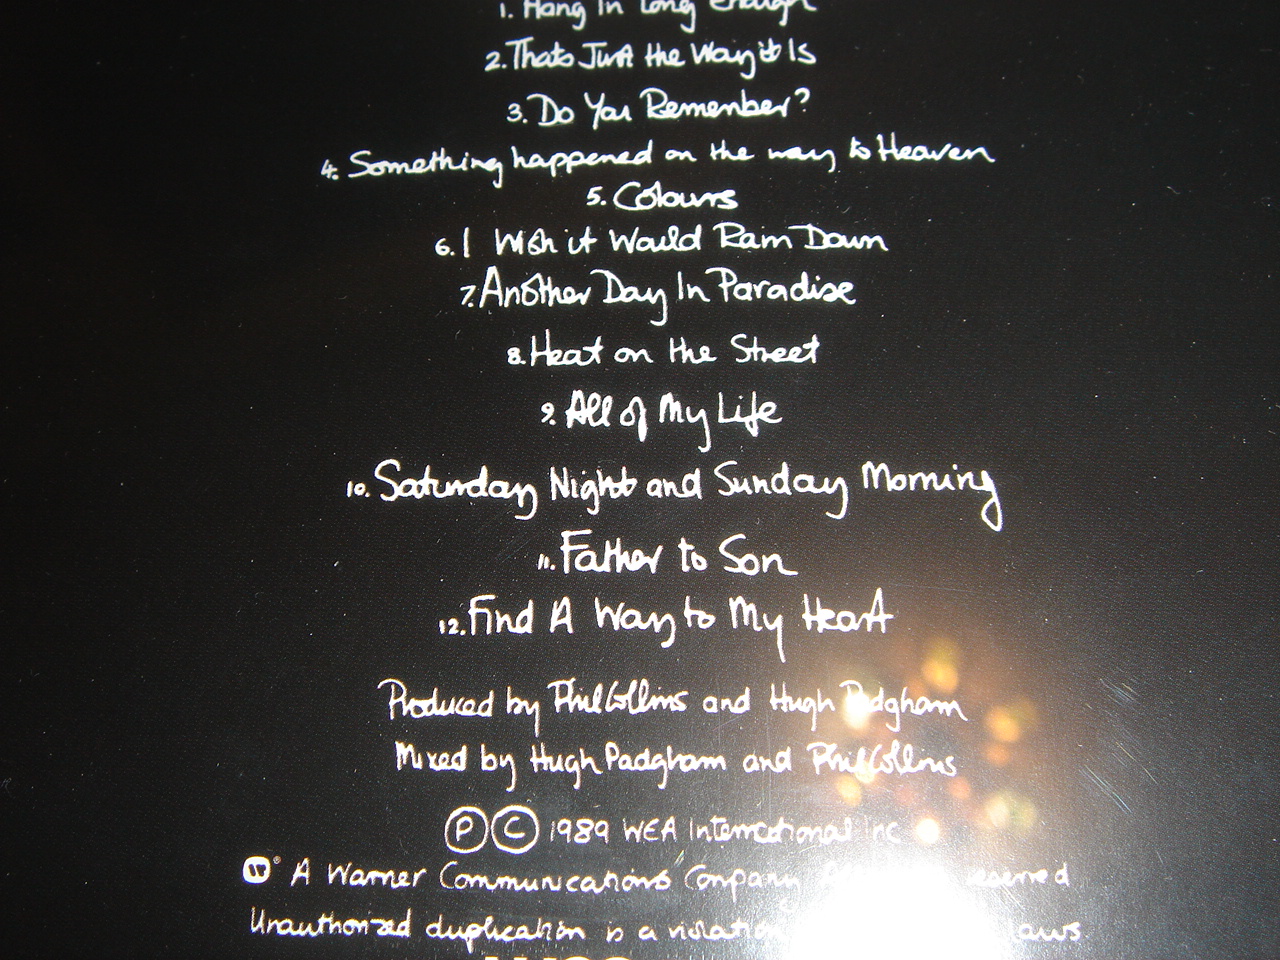 1. Hang In Long Enough
2. Thats Just the Way it Is
3. Do You Remember?
4. Something happened on the way to Heaven
5. Colours
6. I Wish it Would Rain Down
7. Another Day In Paradise
8. Heat on the Street
9. All of My Life
10. Saturday Night and Sunday Morning
11. Father to Son
12. Find A Way to My Heart
Produced by Phil Collins and Hugh Padgham
Mixed by Hugh Padgham and Phil Collins
Ⓟ Ⓒ 1989 WEA International Inc
A Warner Communications Company
Unauthorized duplication is a violation